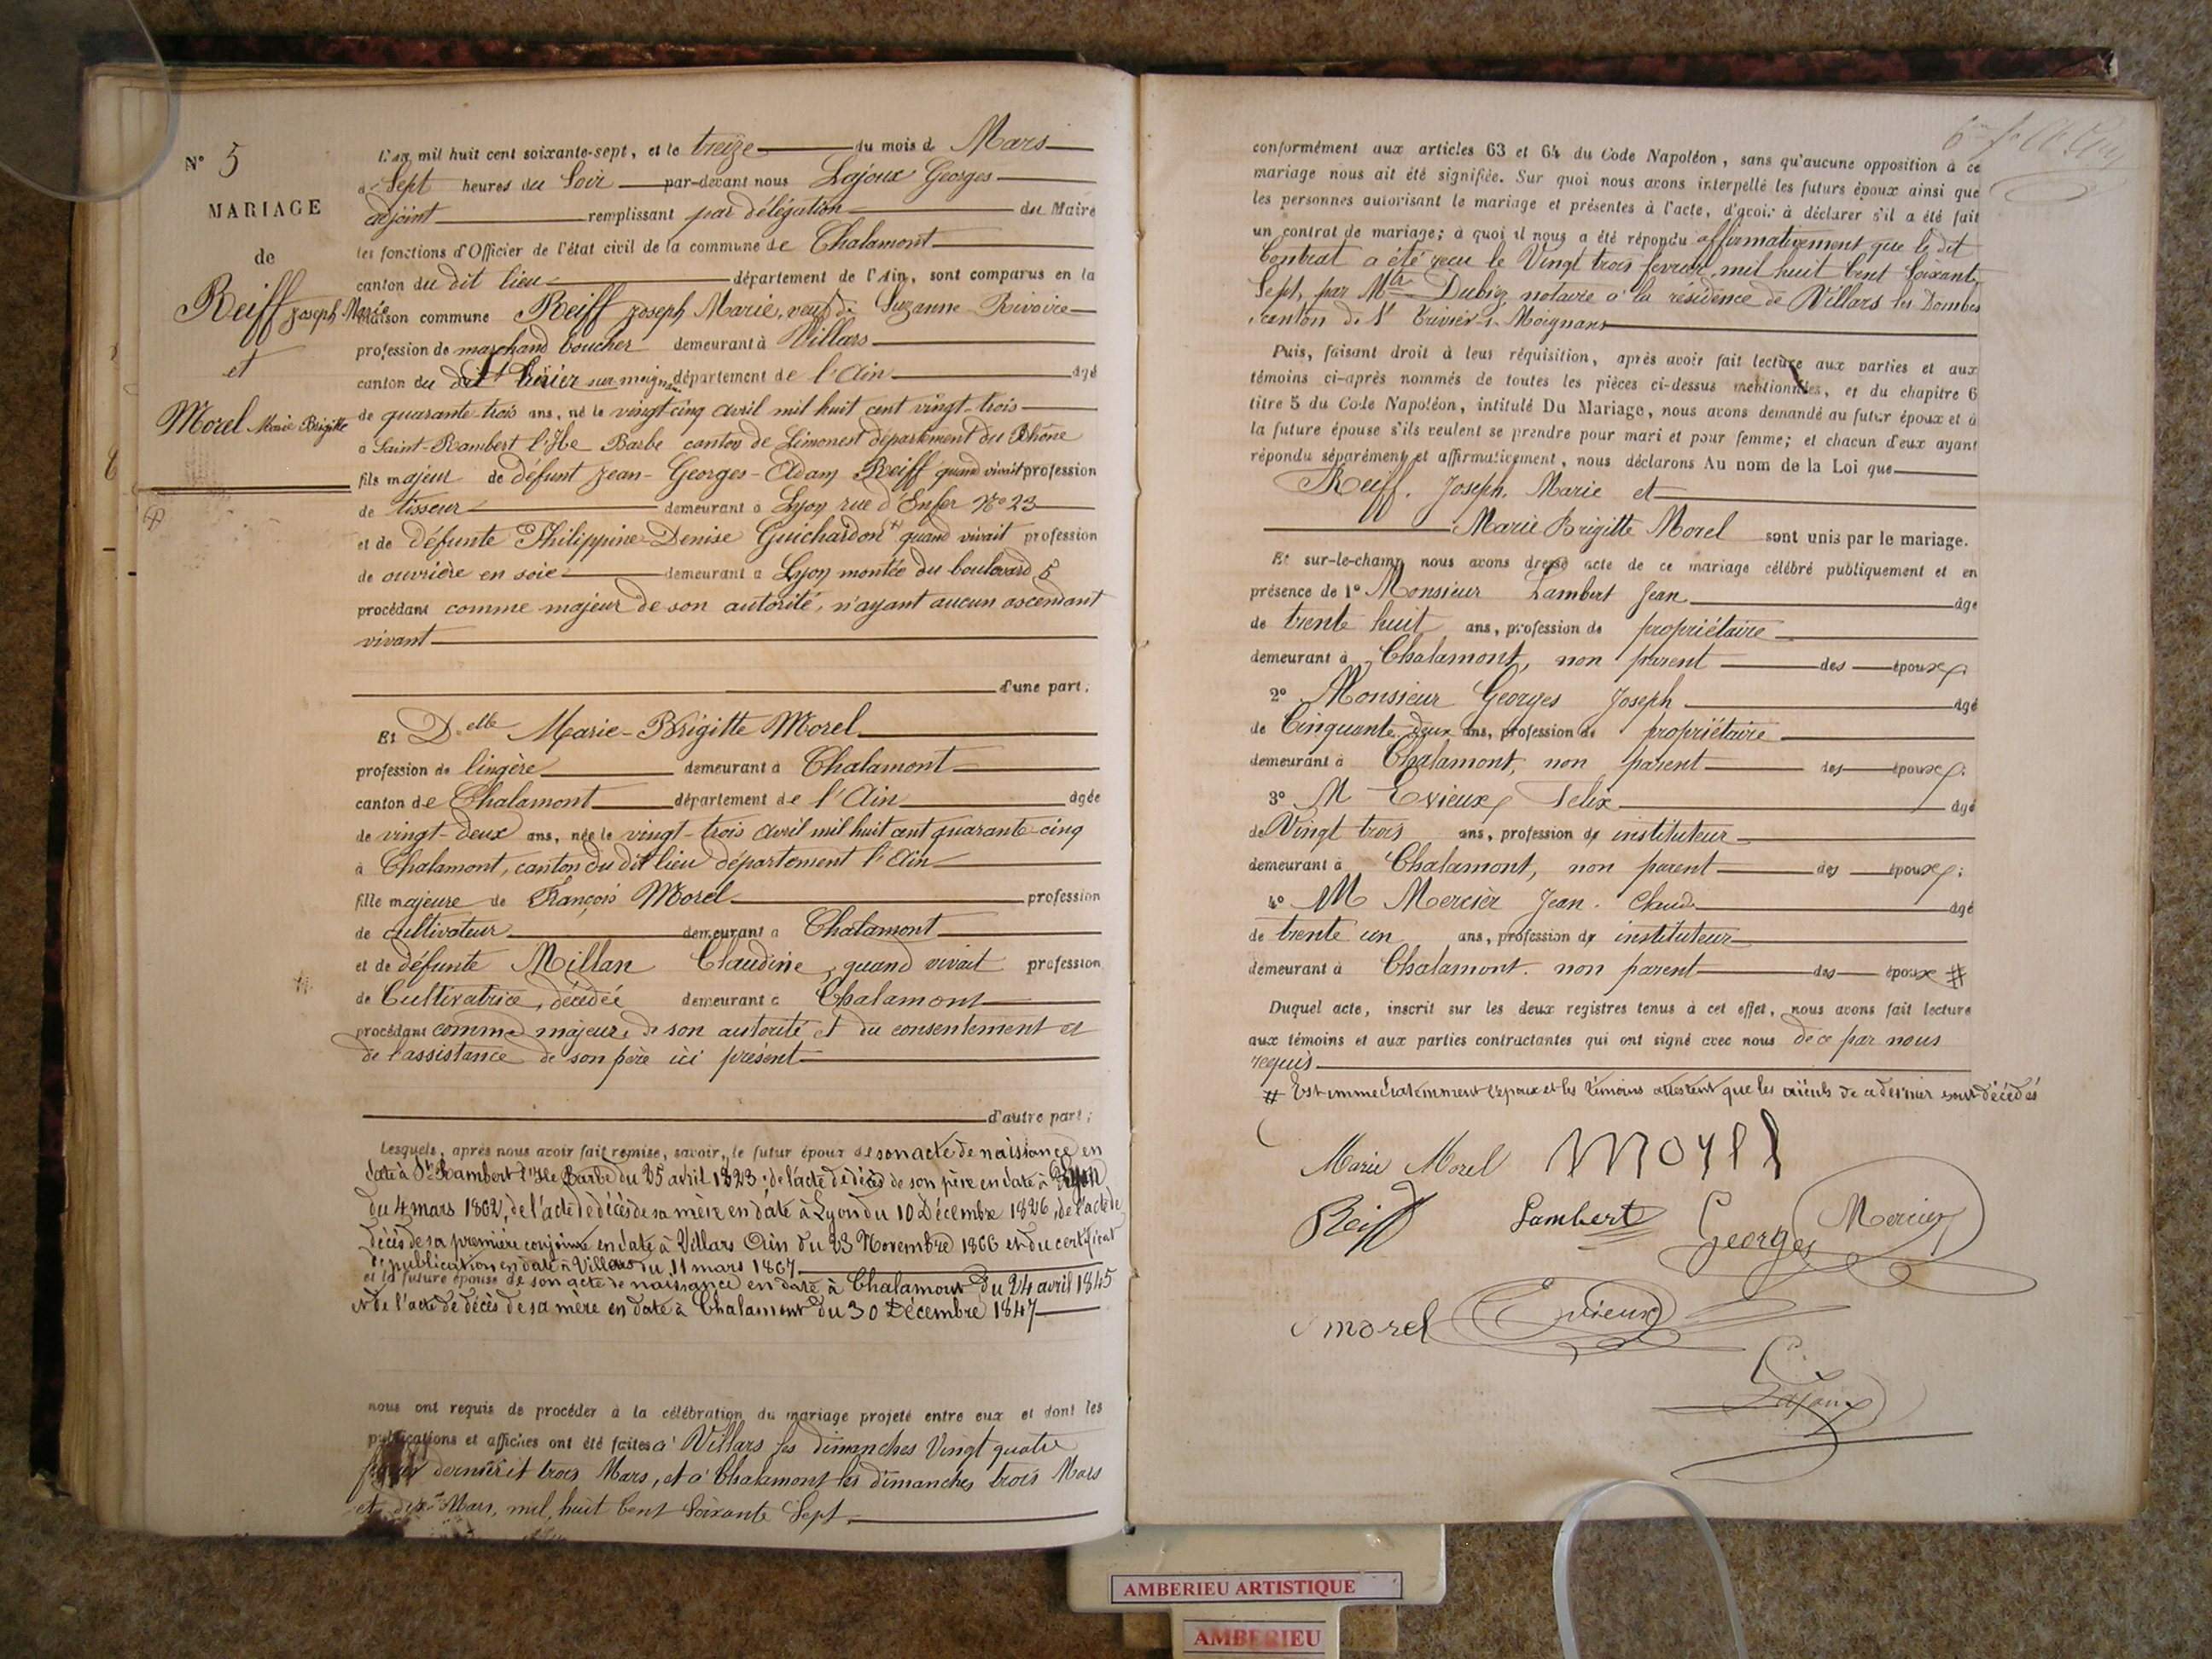 N° 5
MARIAGE
de
Reiff Joseph Marie
et
Morel Marie Brigitte
L'an mil huit cent soixante-sept, et le treize du mois de Mars
à Sept heures du Soir par-devant nous Lajoux Georges
adjoint remplissant par délégation du Maire
les fonctions d'Officier de l'état civil de la commune de Chalamont
canton du dit lieu département de l'Ain, sont comparus en la
maison commune Reiff Joseph Marie, veuf de Suzanne Rivoire
profession de marchand boucher demeurant à Villars
canton du dit St Trivier sur moignans département de l'Ain agé
de quarante trois ans, né le vingt cinq avril mil huit cent vingt-trois
à Saint-Rambert l'Ile Barbe canton de Limonest département du Rhône
fils majeur de défunt Jean-Georges-Adam Reiff quand vivait profession
de tisseur demeurant à Lyon rue d'Enfer N° 23
et de défunte Philippine-Denise Guichardon quand vivait profession
de ouvrière en soie demeurant à Lyon montée du boulevard 5
procédant comme majeur de son autorité, n'ayant aucun ascendant
vivant
d'une part;
Et D.elle Marie-Brigitte Morel
profession de lingère demeurant à Chalamont
canton de Chalamont département de l'Ain agée
de vingt-deux ans, née le vingt-trois avril mil huit cent quarante-cinq
à Chalamont, canton du dit lieu département l'Ain
fille majeure de François Morel profession
de cultivateur demeurant à Chalamont
et de défunte Millan Claudine, quand vivait profession
de Cultivatrice, décédée demeurant à Chalamont
procédant comme majeure de son autorité et du consentement et
de l'assistance de son père ici présent
d'autre part;
Lesquels, après nous avoir fait remise, savoir, le futur époux de son acte de naissance en
date à St Rambert l'Ile Barbe du 25 avril 1823, de l'acte de décès de son père en date à Lyon
du 4 mars 1862, de l'acte de décès de sa mère en date à Lyon du 10 Décembre 1826, de l'acte de
décès de sa première conjointe en date à Villars Ain du 23 Novembre 1866 et du certificat
de publication en date à Villars du 11 mars 1867
et la future épouse de son acte de naissance en date à Chalamont du 24 avril 1845
et de l'acte de décès de sa mère en date à Chalamont du 30 Décembre 1847
nous ont requis de procéder à la célébration du mariage projeté entre eux et dont les
publications et affiches ont été faites à Villars les dimanches Vingt quatre
dernier et trois Mars, et à Chalamont les dimanches trois Mars
et dix Mars, mil huit Cent Soixante Sept.
conformément aux articles 63 et 64 du Code Napoléon, sans qu'aucune opposition à ce
mariage nous ait été signifiée. Sur quoi nous avons interpellé les futurs époux ainsi que
les personnes autorisant le mariage et présentes à l'acte, d'avoir à déclarer s'il a été fait
un contrat de mariage; à quoi il nous a été répondu affirmativement que le dit
Contrat a été reçu le Vingt trois fevrier, mil huit Cent Soixante
Sept, par Mtre Dubiez notaire à la résidence de Villars les Dombes
canton de St Trivier-s-Moignans
Puis, faisant droit à leur réquisition, après avoir fait lecture aux parties et aux
témoins ci-après nommés de toutes les pièces ci-dessus mentionnées, et du chapitre 6
titre 5 du Code Napoléon, intitulé Du Mariage, nous avons demandé au futur époux et à
la future épouse s'ils veulent se prendre pour mari et pour femme; et chacun d'eux ayant
répondu séparément et affirmativement, nous déclarons Au nom de la Loi que
Reiff. Joseph. Marie et
Marie Brigitte Morel sont unis par le mariage.
Et sur-le-champ nous avons dressé acte de ce mariage célébré publiquement et en
présence de 1° Monsieur Lambert Jean âgé
de trente huit ans, profession de propriétaire
demeurant à Chalamont, non parent des époux;
2° Monsieur Georges Joseph agé
de Cinquante deux ans, profession de propriétaire
demeurant à Chalamont, non parent des époux;
3° M Evieux Felix agé
de Vingt trois ans, profession de instituteur
demeurant à Chalamont, non parent des époux;
4° M Mercier Jean. Claude agé
de trente un ans, profession de instituteur
demeurant à Chalamont. non parent des époux #
Duquel acte, inscrit sur les deux registres tenus à cet effet, nous avons fait lecture
aux témoins et aux parties contractantes qui ont signé avec nous de ce par nous
requis
# Et immediatemment l'époux et les témoins attestent que les aïeuls de ce dernier sont décédés
Marie Morel morel
Reiff Lambert Georges Mercier
morel Evieux
Lajoux
AMBERIEU ARTISTIQUE
AMBERIEU